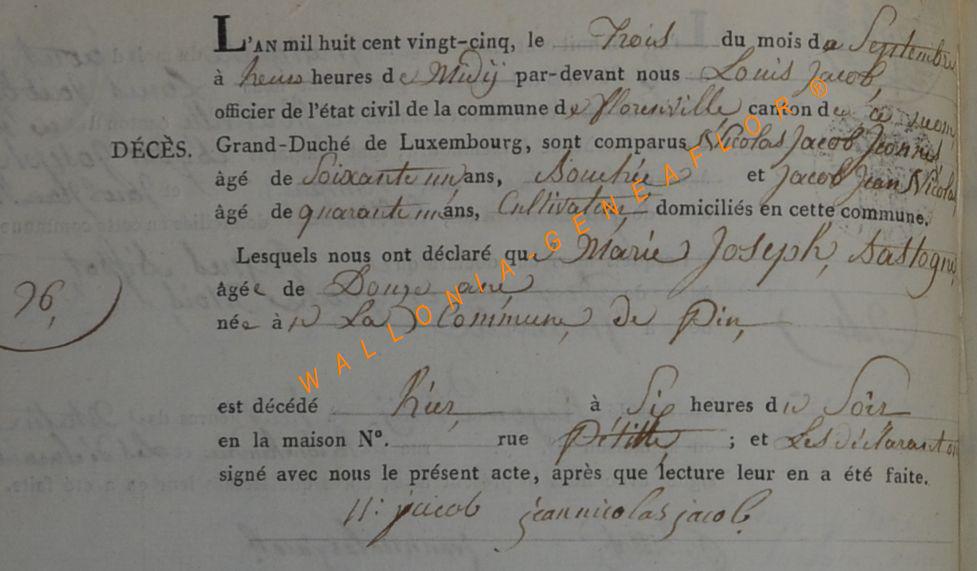 L'AN mil huit cent vingt-cinq, le Trois du mois de Septembre
à heures d Midÿ par-devant nous Louis Jacob,
officier de l'état civil de la commune de florenville canton de
DÉCÈS. Grand-Duché de Luxembourg, sont comparus Nicolas Jacob
âgé de Soixante un ans, et Jacob Jean Nicolas
âgé de quarante un ans, Cultivateur domiciliés en cette commune.
Lesquels nous ont déclaré que Marie Joseph, Bastogne
96, âgée de Douze ans
née à La Commune de Pin,
est décédé hier à Six heures du Soir
en la maison N°. rue ; et Les déclarant on
signé avec nous le présent acte, après que lecture leur en a été faite.
n: jacob jean nicolas jacob
WALLONIA-GENEAFLOR ®